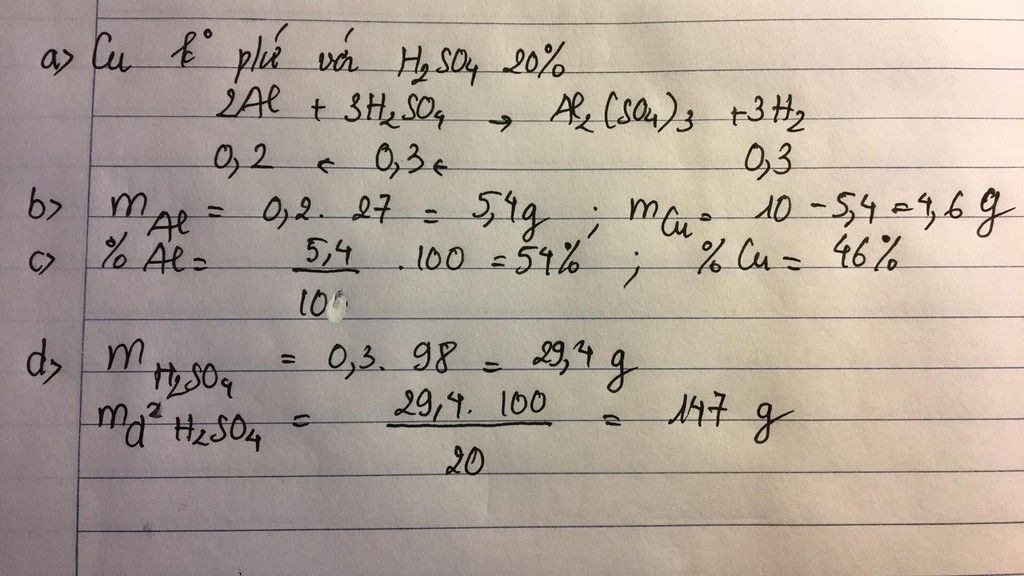 a> Cu k° pứ với H₂SO₄ 20%
2Al + 3H₂SO₄ → Al₂(SO₄)₃ + 3H₂
0,2 ← 0,3 ← 0,3
b> m Al = 0,2. 27 = 5,4g ; m Cu = 10 - 5,4 = 4,6 g
c> % Al = 5,4/10 .100 = 54% ; % Cu = 46%
d> m H₂SO₄ = 0,3. 98 = 29,4 g
m d² H₂SO₄ = 29,4. 100/20 = 147 g